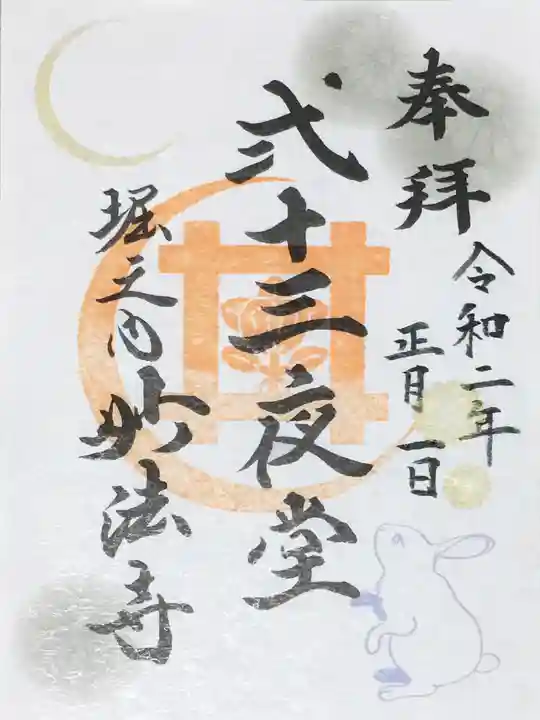 奉拝
令和二年
正月一日
弐十三夜堂
堀之内
妙法寺